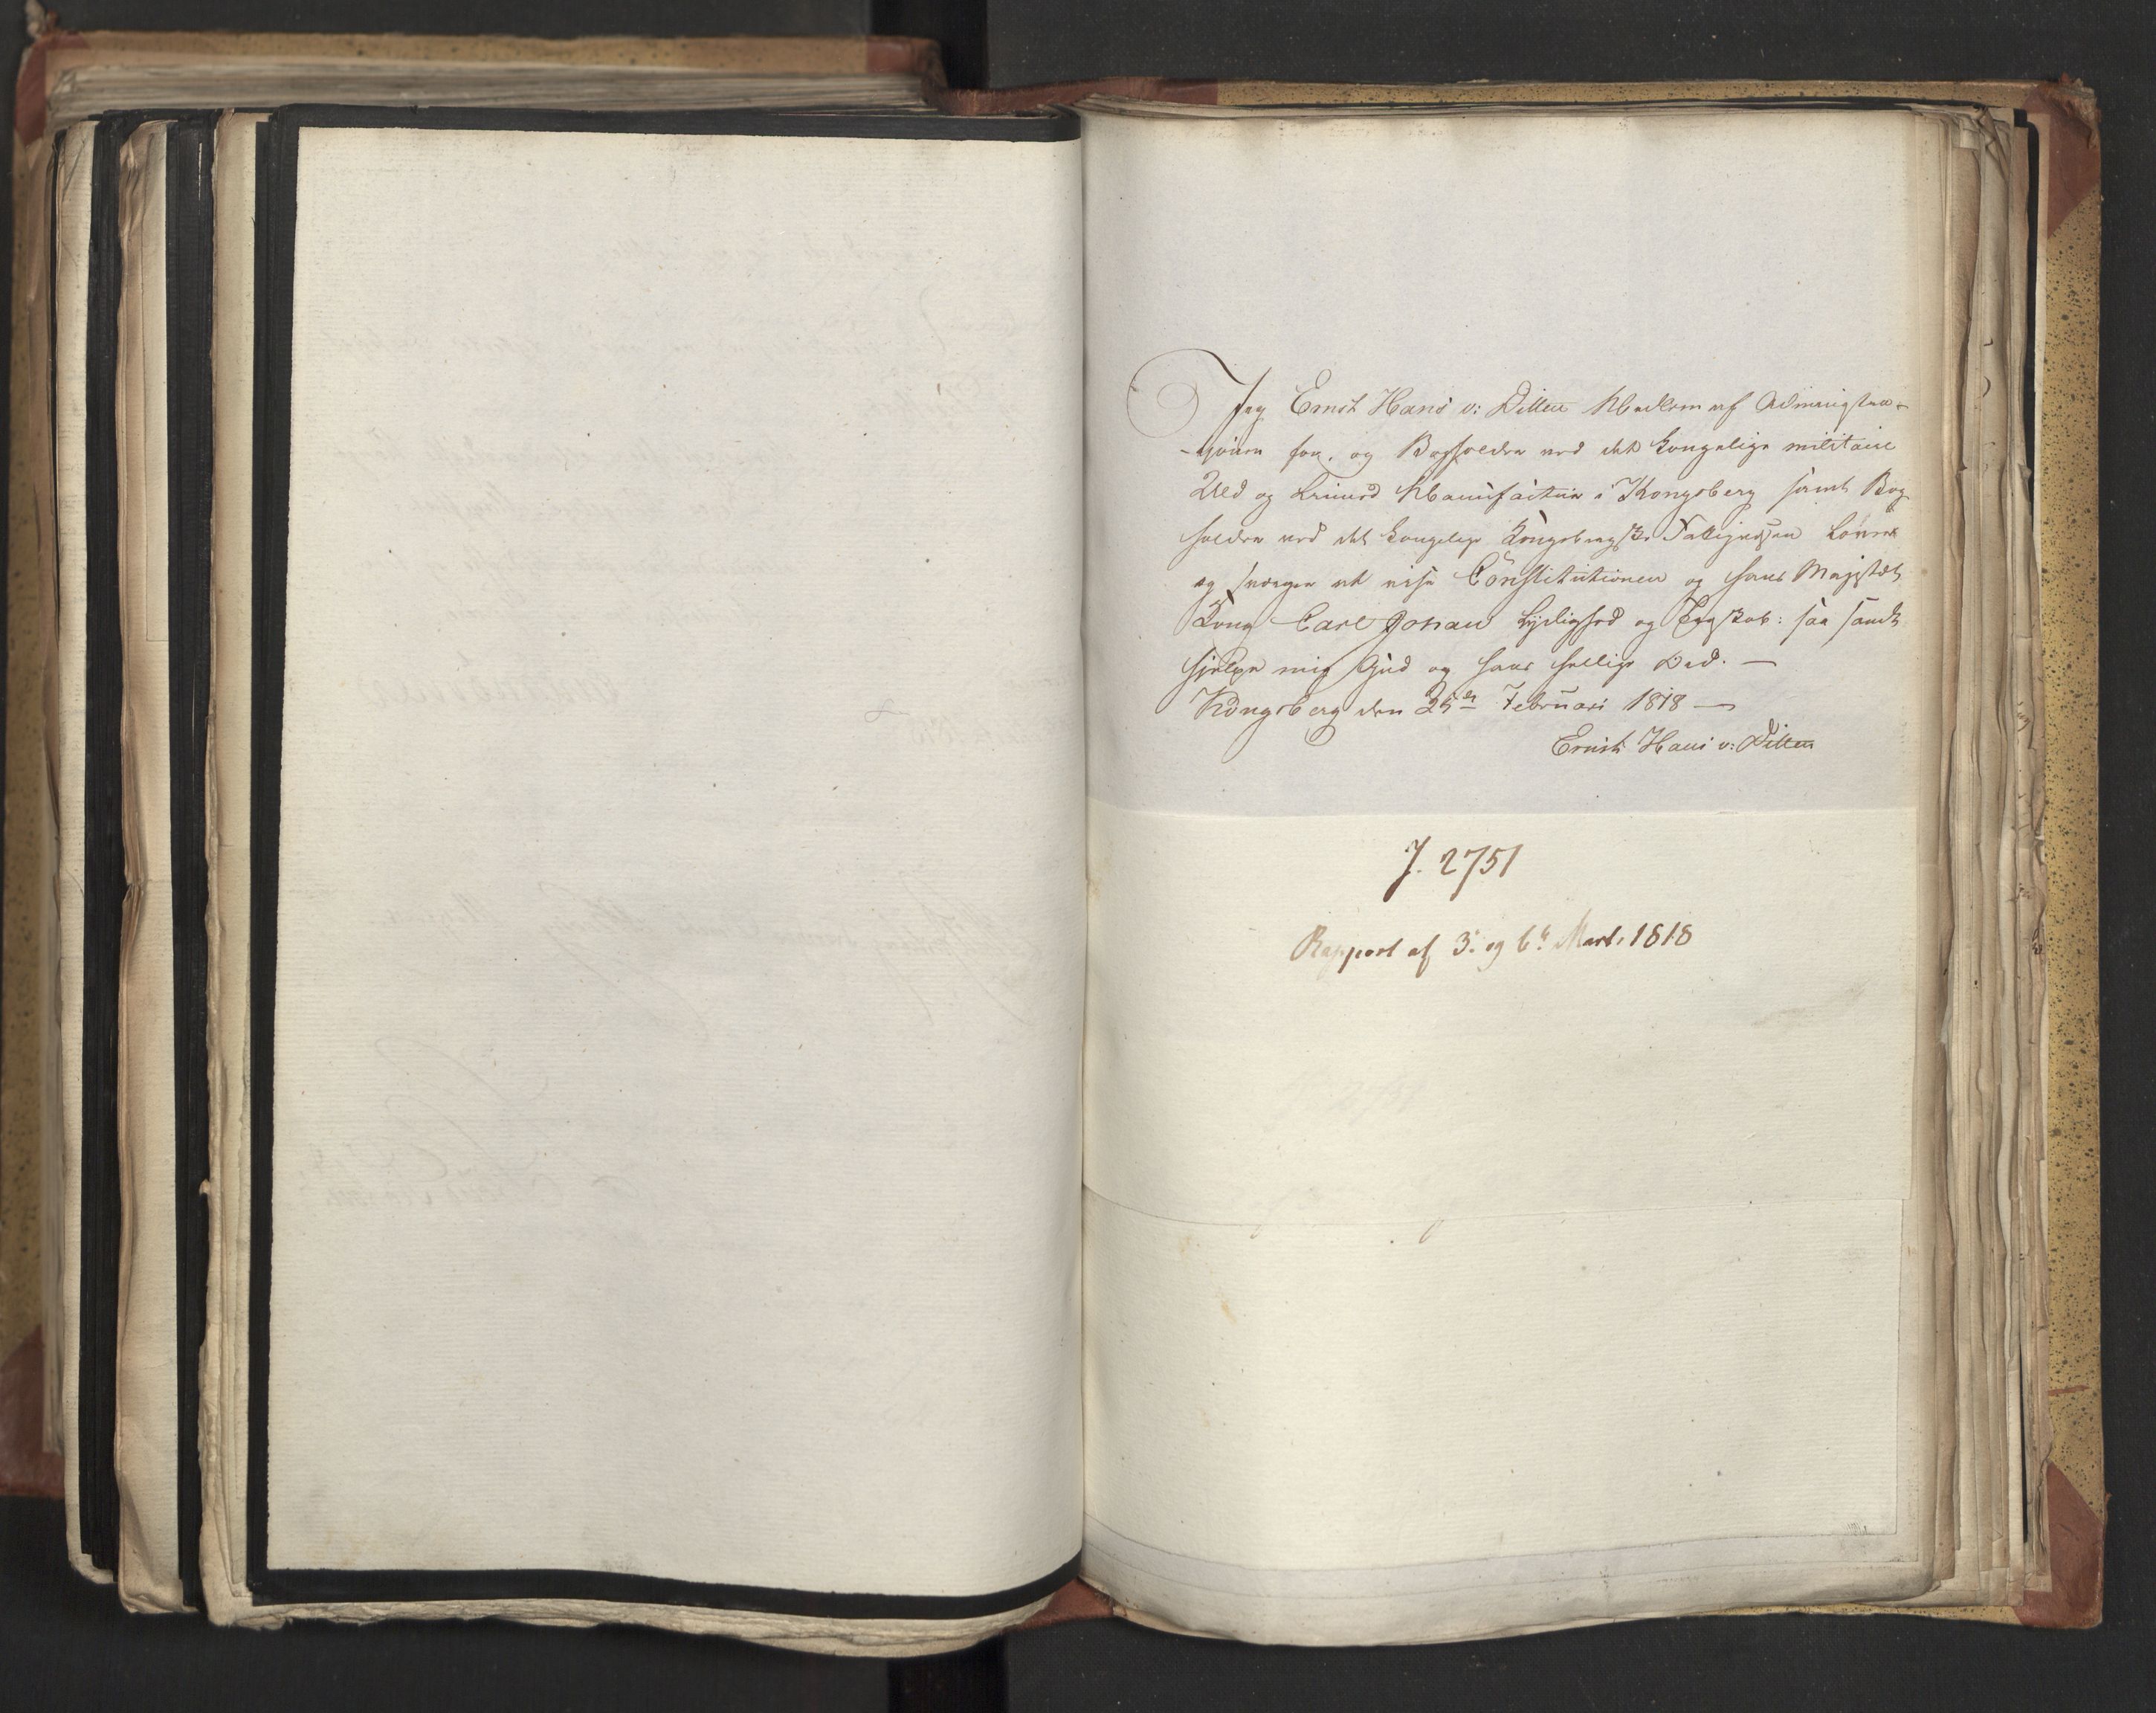 Jeg Ernst Hans v: Ditten Medlem af Administra-
-tionen for, og Bogholder ved det kongelige militaire
Uld og Linned Manufactur i Kongsberg samt Bog
holder ved det kongelige Kongsbergske lover
og sværger at vise Constitutionen og hans Majestæt
Kong Carl Johan Lydighed og Troskab: saa sandt
hjelpe mig Gud og hans hellige Ord. —
Kongsberg den 25de Februari 1818 —
Ernst Hans v: Ditten
J. 2751
Rapport af 3. og 6t Marts 1818